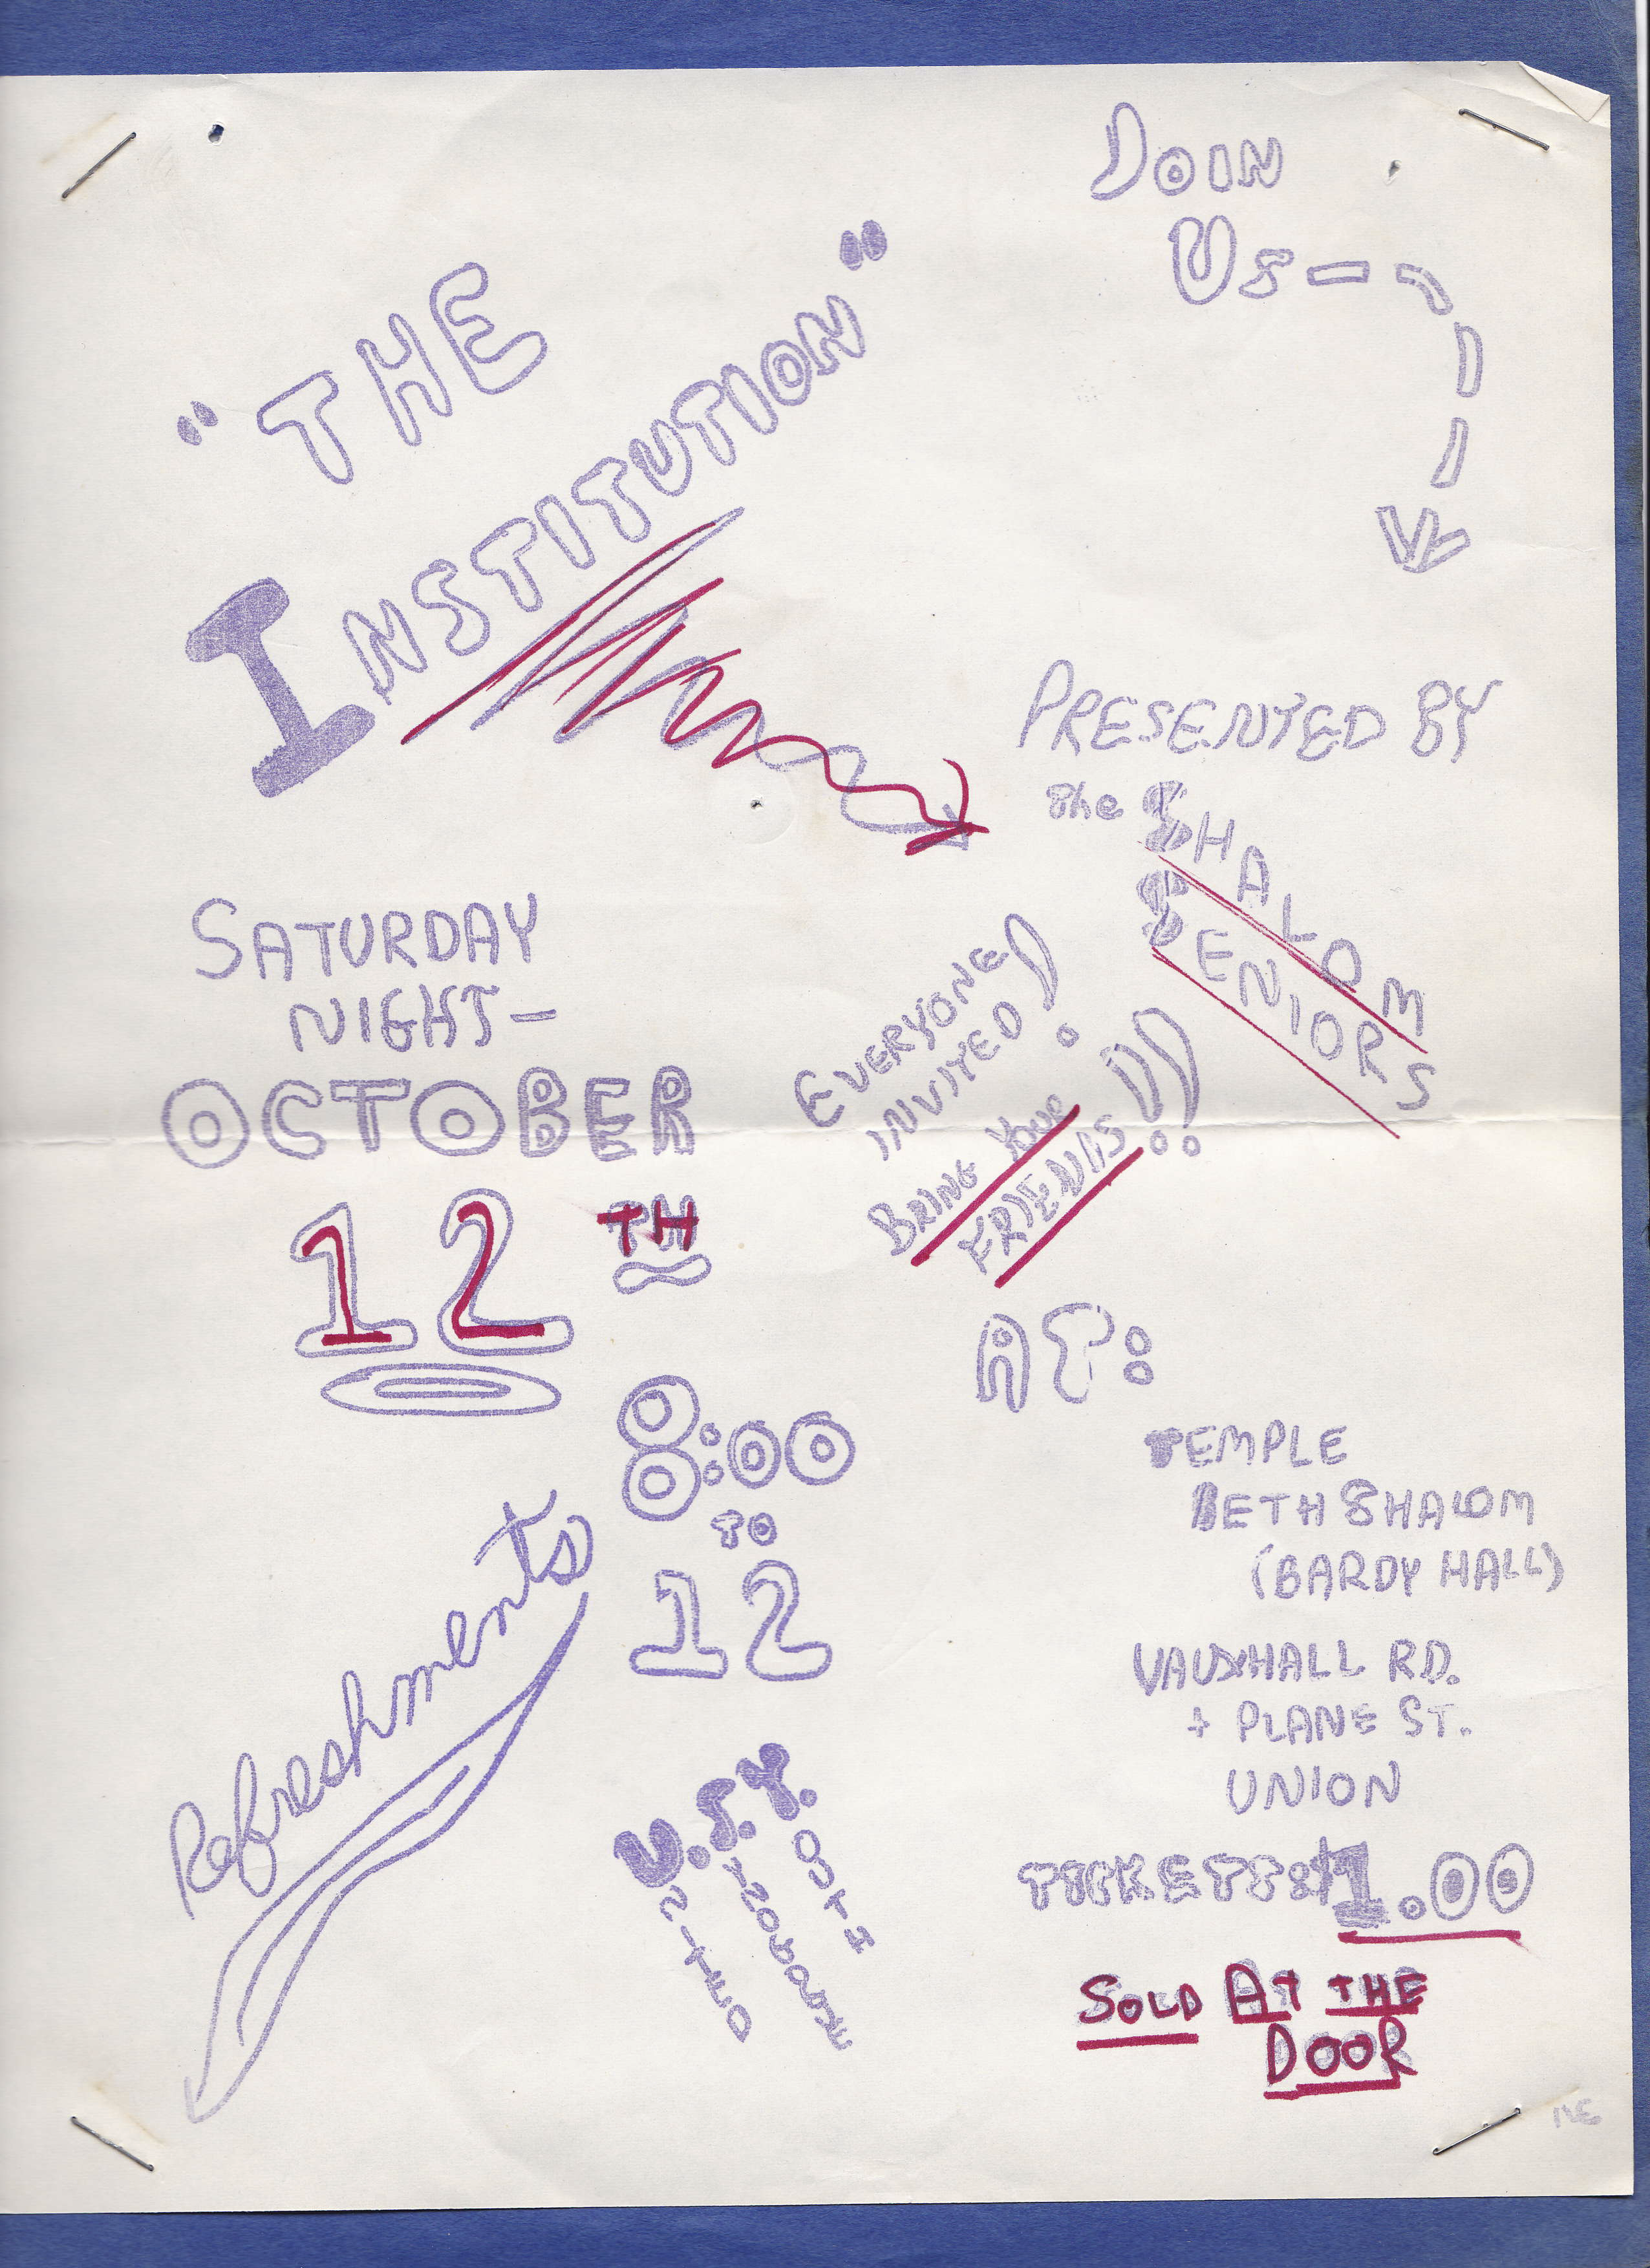 JOIN
US
"THE
INSTITUTION"
PRESENTED BY
the SHALOM
SENIORS
SATURDAY
NIGHT-
OCTOBER
12TH
EVERYONE
INVITED!
BRING YOUR
FRIENDS!!
8:00
TO
12
AT:
TEMPLE
BETH SHALOM
(BARDY HALL)
VAUXHALL RD.
+ PLANE ST.
UNION
Refreshments
U.S.Y.
UNITED
SYNAGOGUE
YOUTH
TICKETS: $1.00
SOLD AT THE
DOOR
NE